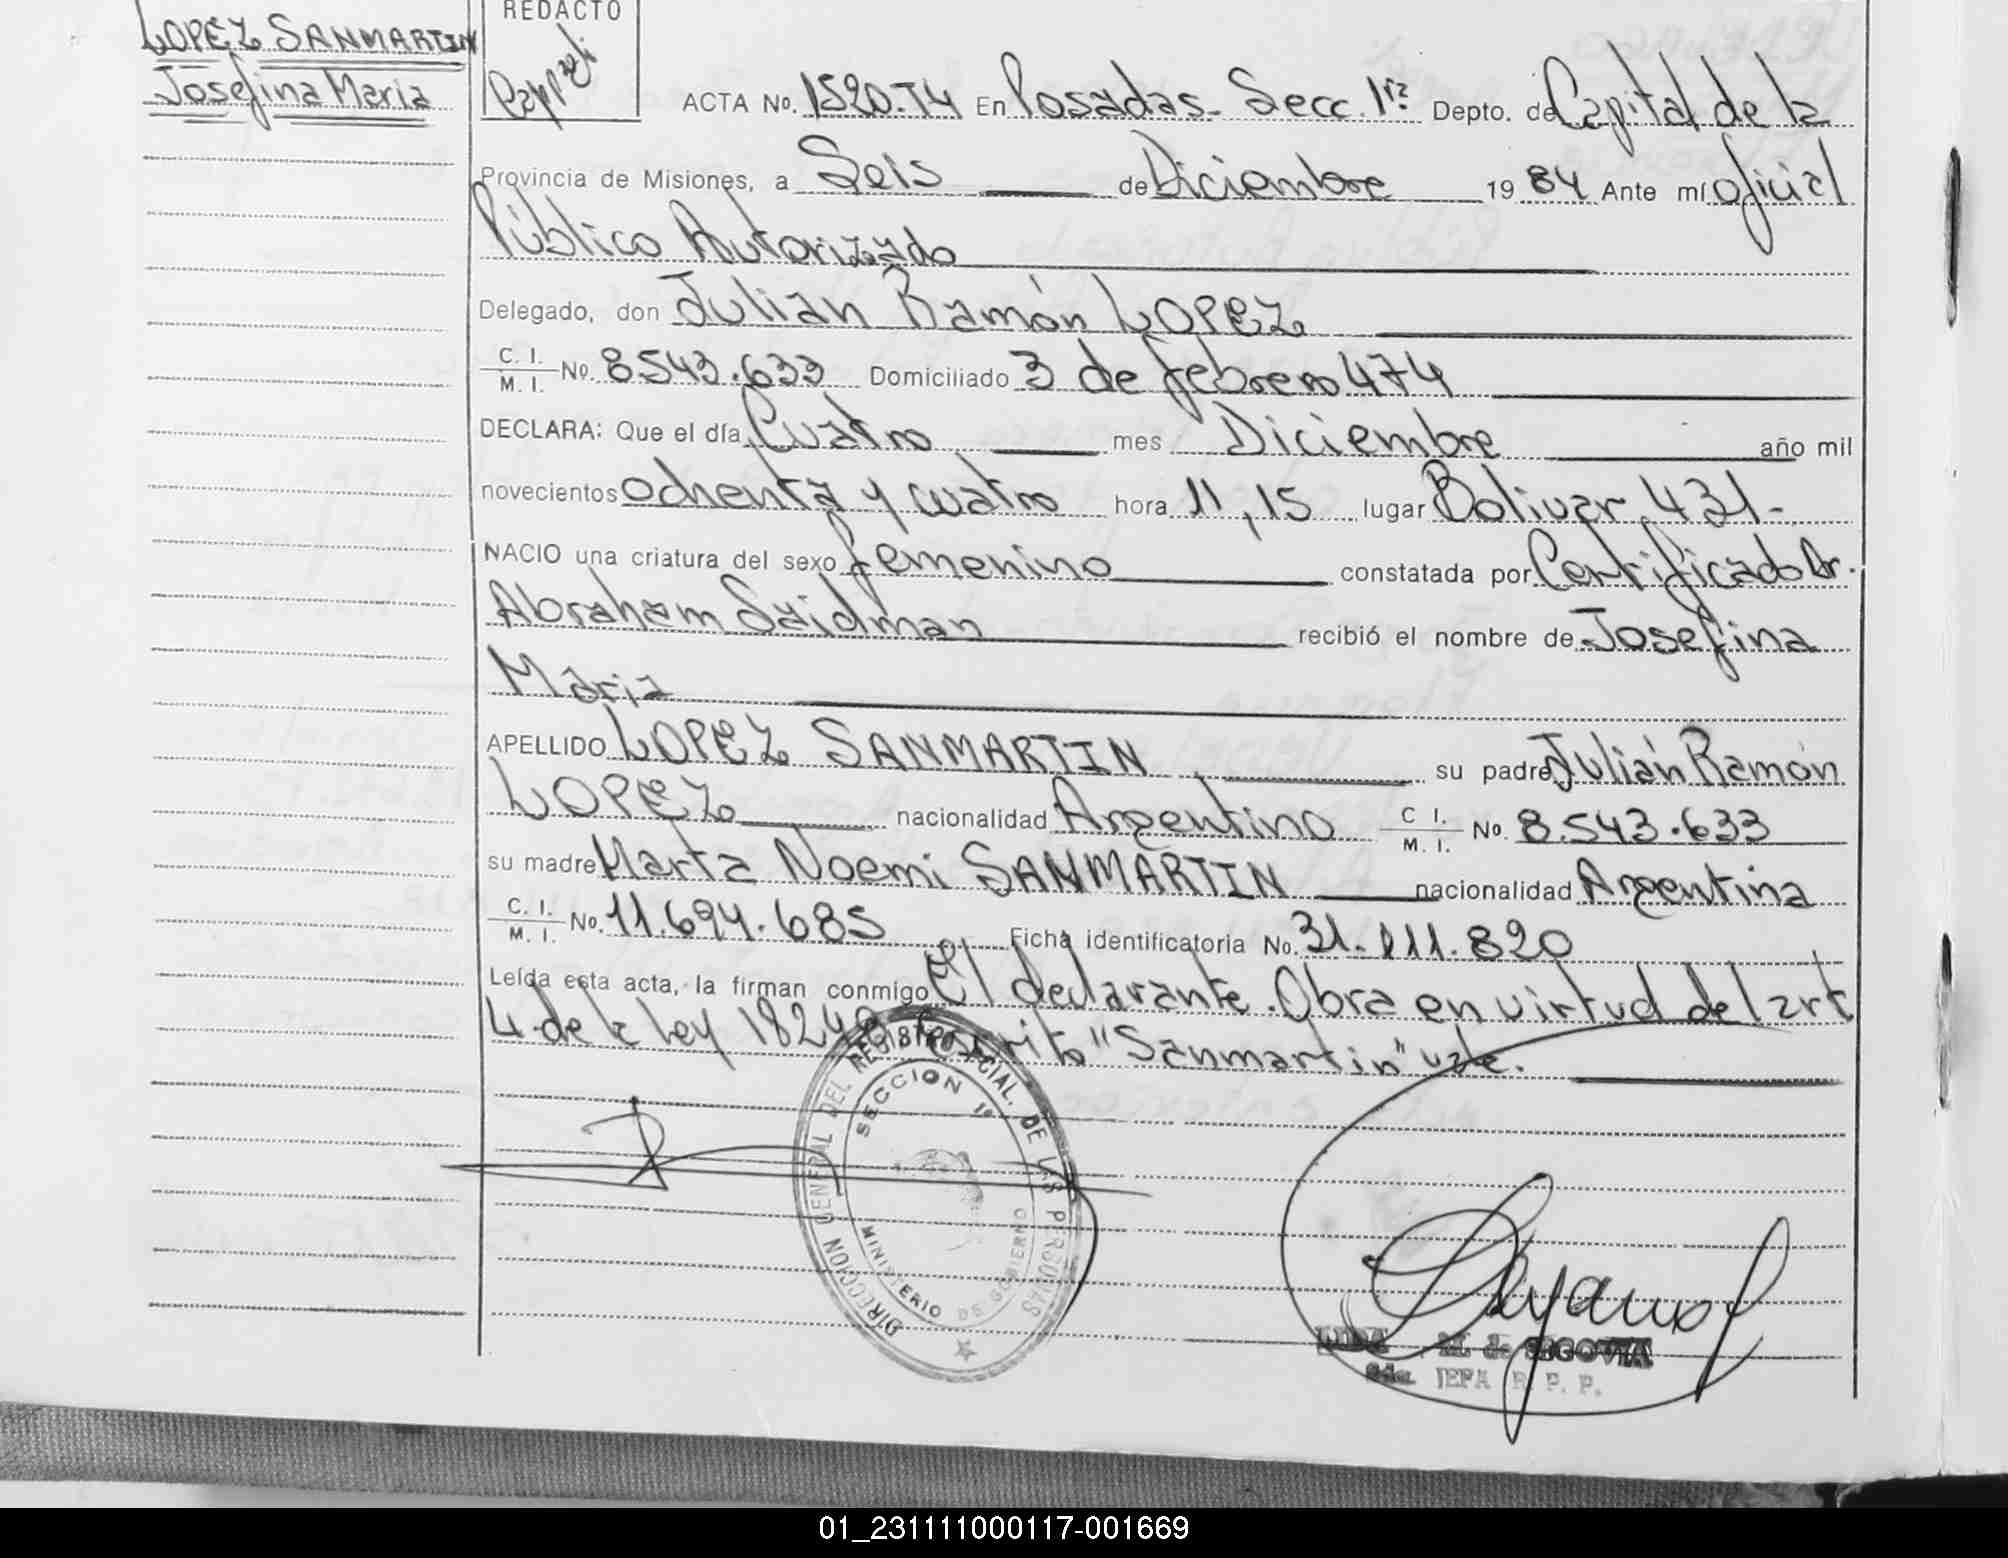 LOPEZ SANMARTIN
Josefina Maria
REDACTO
ACTA No. 1520-T4 En Posadas - Secc. 1ra Depto. de Capital de la
Provincia de Misiones, a Seis de Diciembre 1984 Ante mí oficial
Público Autorizado
Delegado, don Julian Ramón LOPEZ
C. I. / M. I. No. 8.543.633 Domiciliado 3 de febrero 474
DECLARA: Que el día Cuatro mes Diciembre año mil
novecientos ochenta y cuatro hora 11,15 lugar Bolivar 431-
NACIO una criatura del sexo femenino constatada por Certificado Dr.
Abraham Saidman recibió el nombre de Josefina
Maria
APELLIDO LOPEZ SANMARTIN su padre Julián Ramón
LOPEZ nacionalidad Argentino C I. / M. I. No. 8.543.633
su madre Marta Noemi SANMARTIN nacionalidad Argentina
C. I. / M. I. No. 11.694.685 Ficha identificatoria No. 31-111.820
Leída esta acta, la firman conmigo El declarante. Obra en virtud del art
4 de la ley 18248 "Sanmartin" vale.
DIRECCION GENERAL DEL REGISTRO DE LAS PERSONAS
SECCION 1a
MINISTERIO DE GOBIERNO
M. de SEGOVIA
2da. JEFA R. P. P.
01_231111000117-001669